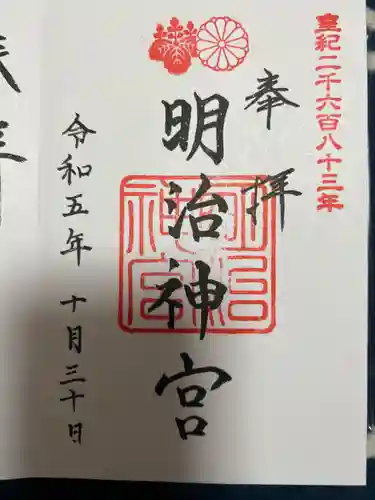 皇紀二千六百八十三年
奉拝
明治神宮
明治神宮
令和五年 十月三十日